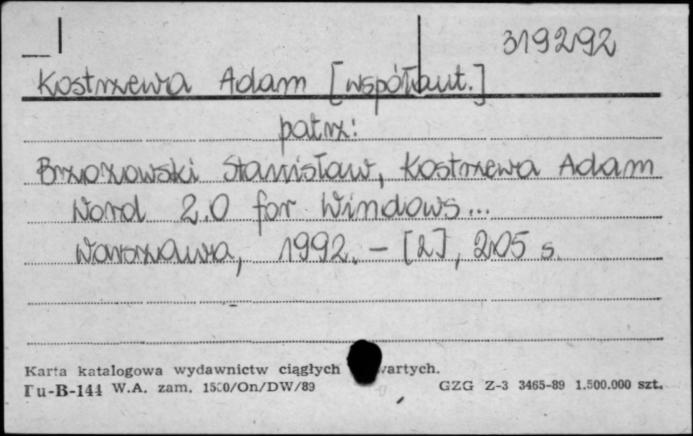 319292
Kostrzewa Adam [współaut.]
patrz:
Brzozowski Stanisław, Kostrzewa Adam
Word 2.0 for Windows...
Warszawa, 1992. - [2], 205 s.
Karta katalogowa wydawnictw ciągłych
Pu-B-144 W.A. zam. 1500/On/DW/89 GZG Z-3 3465-89 1.500.000 szt.